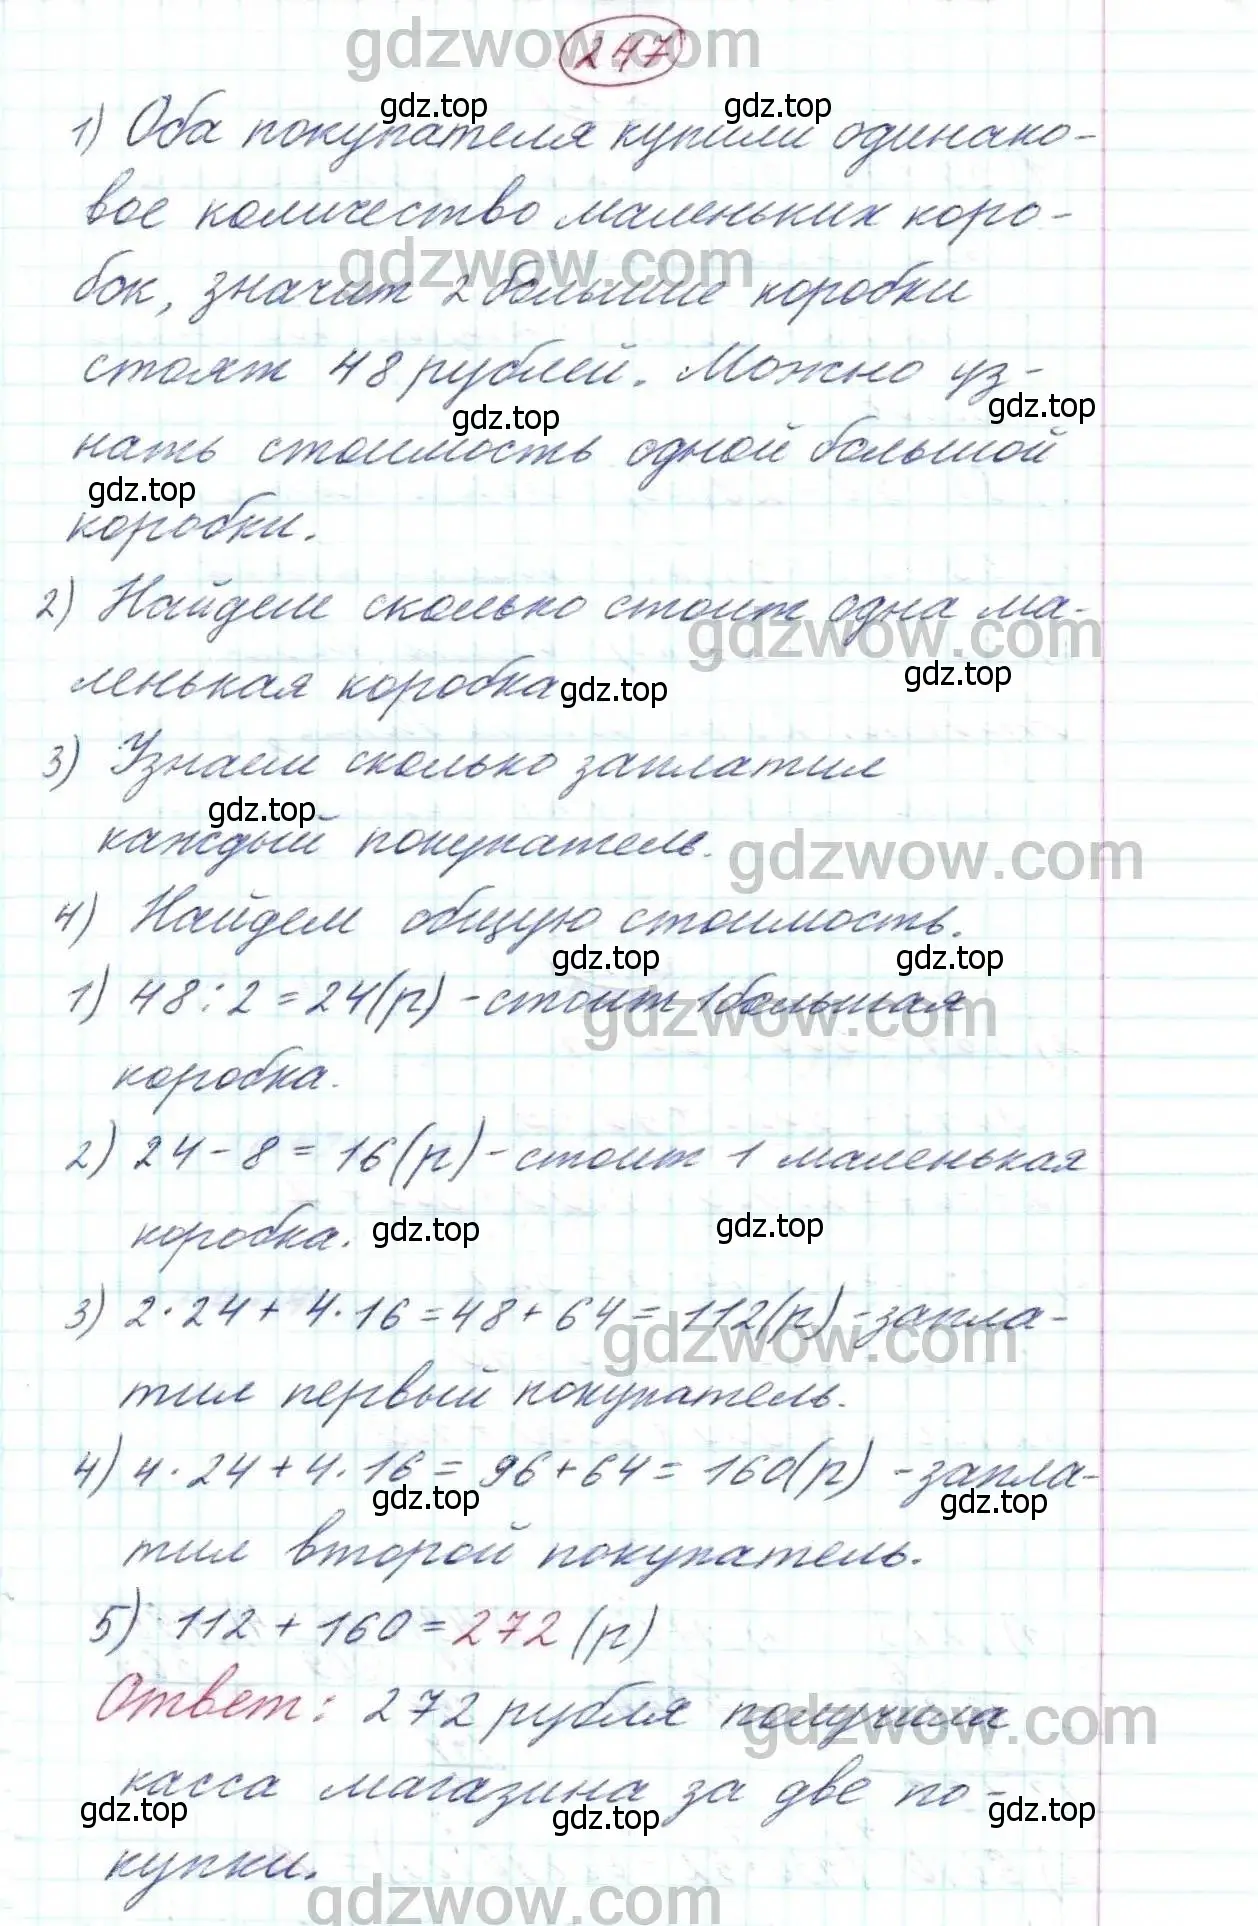 gdzwow.com
247
gdz.top gdz.top
1) Оба покупателя купили одинако-
вое количество маленьких коро-
gdzwow.com
бок, значит 2 большие коробки
стоят 48 рублей. Можно уз-
gdz.top gdz.top
нать стоимость одной большой
gdz.top
коробки.
2) Найдем сколько стоит одна ма-
gdzwow.com
ленькая коробка
gdz.top gdz.top
3) Узнаем сколько заплатил
gdz.top
каждый покупатель.
gdzwow.com
4) Найдем общую стоимость.
gdz.top gdz.top
1) 48:2=24(р) -стоит 1большая
gdzwow.com
коробка.
2) 24-8=16(р)-стоит 1 маленькая
коробка.
gdz.top gdz.top
3) 2·24+4·16=48+64=112(р)-запла-
gdzwow.com
тил первый покупатель.
4) 4·24+4·16=96+64=160(р) -запла-
gdz.top gdz.top
тил второй покупатель.
5) 112+160=272(р)
Ответ: 272 рубля получила
gdzwow.com
касса магазина за две по-
gdz.top gdz.top gdz.top
купки.
gdzwow.com